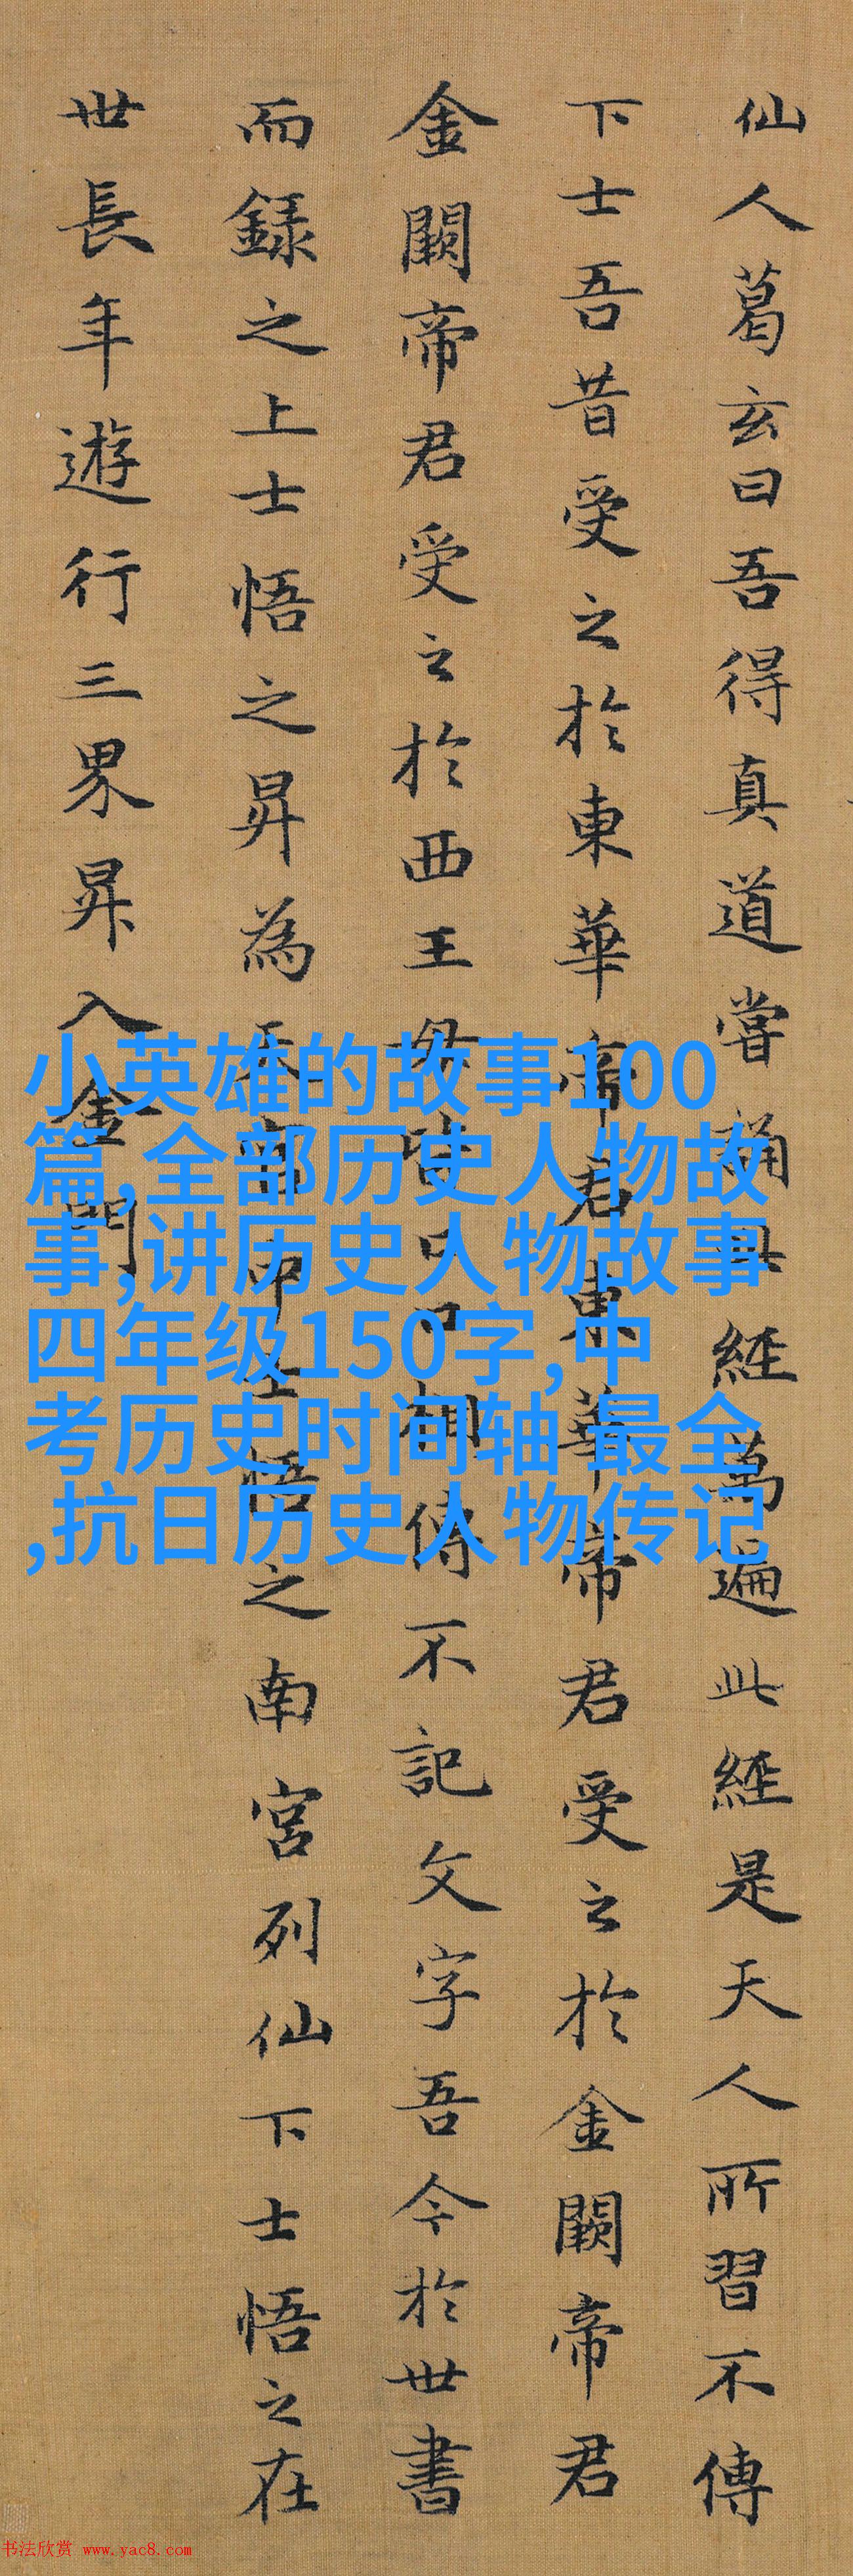 仙人葛玄曰吾得真道嘗誦此經萬遍此經是天人所習不傳
下士吾昔受之於東華帝君東華帝君受之於金闕帝君
金闕帝君受之於西王母皆口口相傳不記文字吾今於世書
而録之上士悟之昇為天官中士悟之南宮列仙下士悟之在
世長年遊行三界昇入金門
小英雄的故事100
篇,全部历史人物故
事,讲历史人物故事
四年级150字,中
考历史时间轴 最全
,抗日历史人物传记
书法欣赏 www.yac8.com